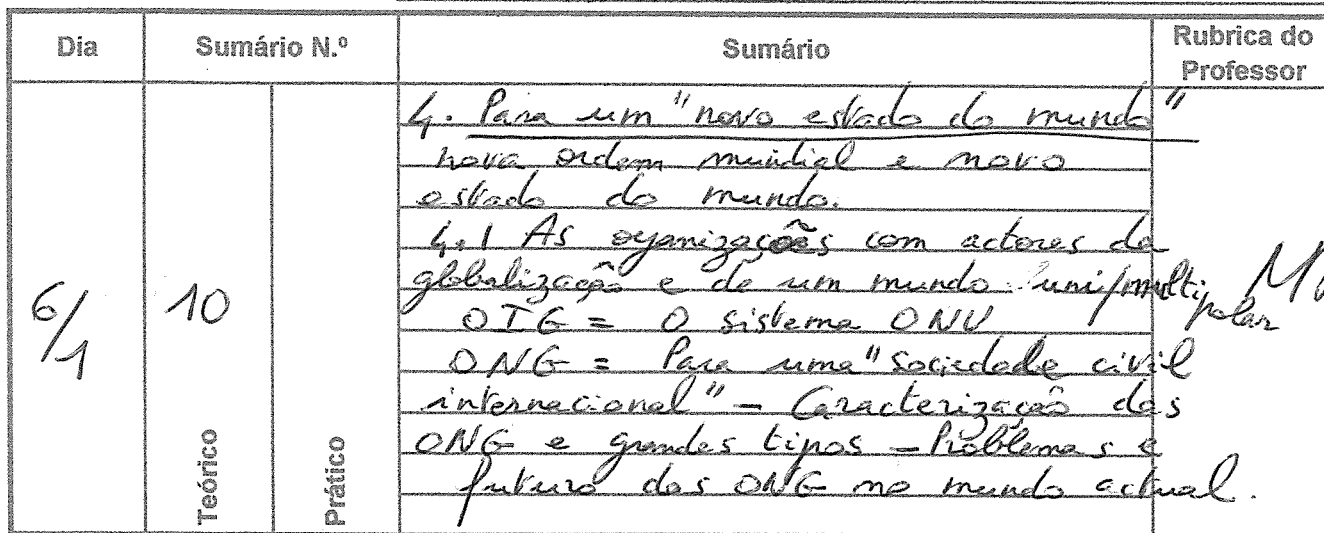 Dia Sumário N.º Sumário Rubrica do Professor
6/1 10
Teórico Prático
4. Para um "novo estado do mundo"
nova ordem mundial e novo
estado do mundo.
4.1 As organizações com actores da
globalização e de um mundo uni/multipolar
OIG = O sistema ONU
ONG = Para uma "sociedade civil
internacional" – Caracterização das
ONG e grandes tipos – Problemas e
futuro das ONG no mundo actual.